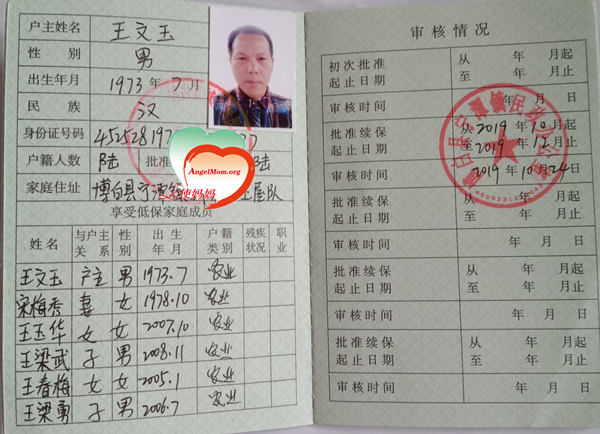 户主姓名 王文玉
性别 男
出生年月 1973年7月
民族 汉
身份证号码 452528197
户籍人数 陆 批准 陆
家庭住址 博白县宁潭镇 屋队
AngelMom.org
天使妈妈
享受低保家庭成员
姓名 与户主关系 性别 出生年月 户籍类别 残疾状况 职业
王文玉 户主 男 1973.7 农业
宋梅秀 妻 女 1978.10 农业
王玉华 女 女 2007.10 农业
王梁武 子 男 2008.11 农业
王春梅 女 女 2005.1 农业
王梁勇 子 男 2006.7 农业
审核情况
初次批准起止日期 从 年 月起
至 年 月止
审核时间 年 月 日
批准续保起止日期 从2019年10月起
至2019年12月止
审核时间 2019年10月24日
批准续保起止日期 从 年 月起
至 年 月止
审核时间 年 月 日
批准续保起止日期 从 年 月起
至 年 月止
审核时间 年 月 日
批准续保起止日期 从 年 月起
至 年 月止
审核时间 年 月 日